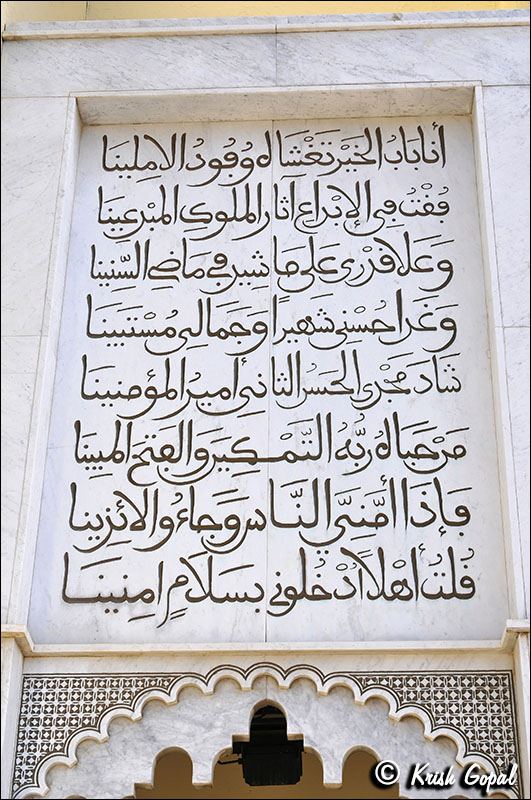 أنا باب الخير تغشاه وفود الآملينا
فقت في الإبداع آثار الملوك المبدعينا
وعلا قدري على ما شيد في ماضي السنينا
وغدا حسني شهيراً وجمالي مستبينا
شاد مجدي الحسن الثاني أمير المؤمنينا
من حباه ربه التمكين والفتح المبينا
فإذا أمني الناس وجاءوا لائذينا
قلت أهلاً أدخلوني بسلام آمنينا
© Krish Gopal